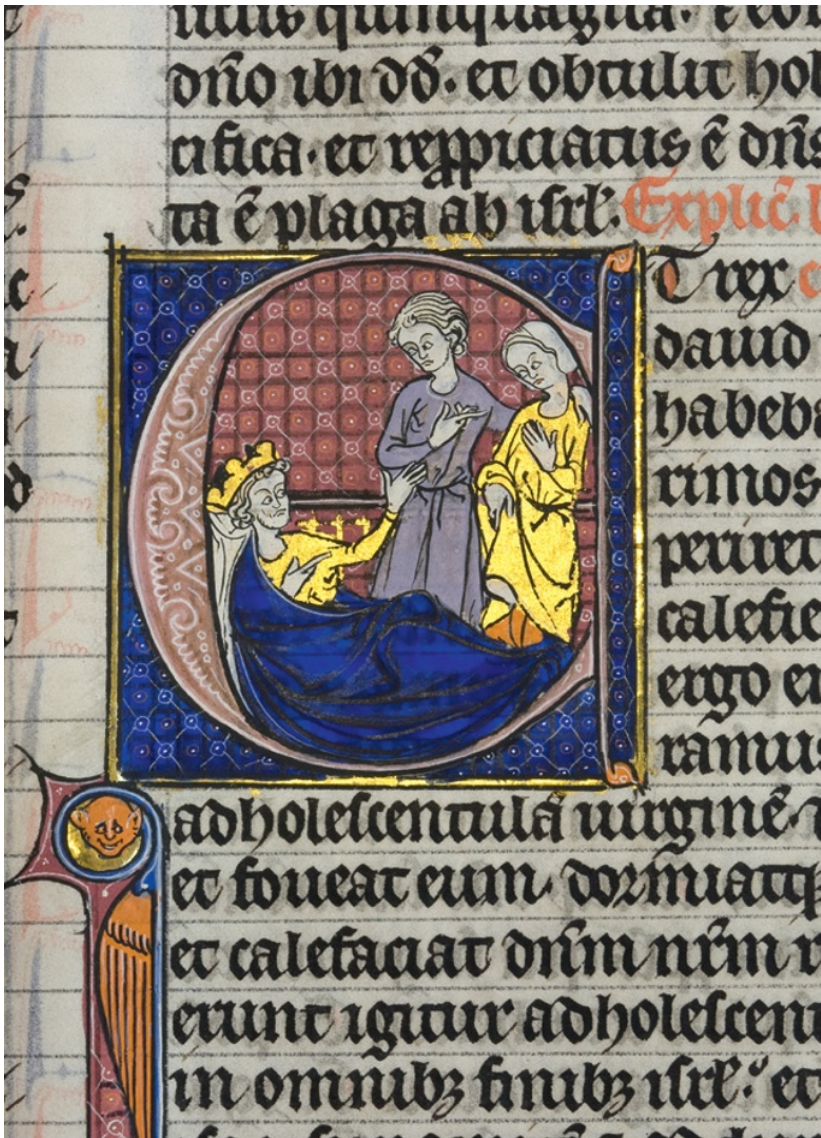 dño ibi dd̄. et obtulit hol
cifica. et reppiciatus ē dñs
ta ē plaga ab isrl̓. Explic̄. l
T rex c
dauid
habeba
rimos
peruret
calefie
ergo er
ramus
adholescentulā uirginē.
et foueat eum. dormiatqꝫ
et calefaciat dñm nr̄m r
erunt igitur adholescent
in omnibꝫ finibꝫ isrl̓. et